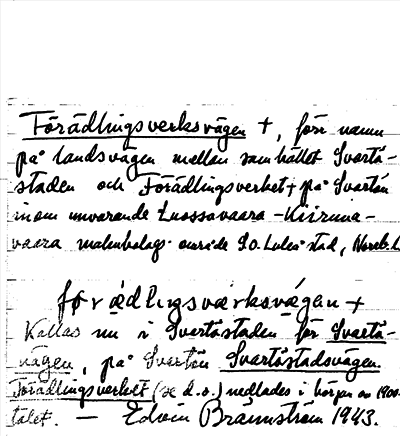 Förädlingsverksvägen +, förr namn
på landsvägen mellan samhället Svartö-
staden och Förädlingsverket + på Svartön
inom nuvarande Luossavaara-Kiiruna-
vaara malmbolags område S.O. Luleå stad, Norrb. L
förädlingsvärksvägan +
Kallas nu i Svartöstaden för Svartö-
vägen, på Svartön Svartöstadsvägen.
Förädlingsverket (se d.o.) nedlades i början av 1900-
talet. — Edvin Brännström 1943.